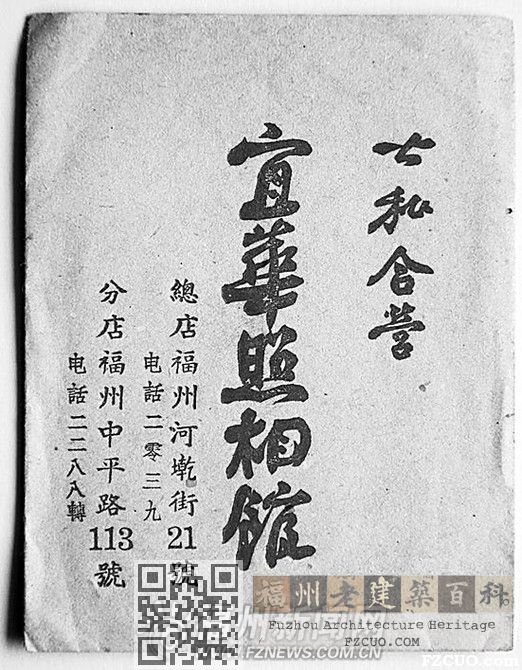 公私合營
宜華照相館
總店福州河墘街21號
电話二零三九
分店福州中平路113號
电話二二八八轉
福州老建築百科
Fuzhou Architecture Heritage
FZCUO.COM
WWW.FZNEWS.COM.CN
FZCUO.com